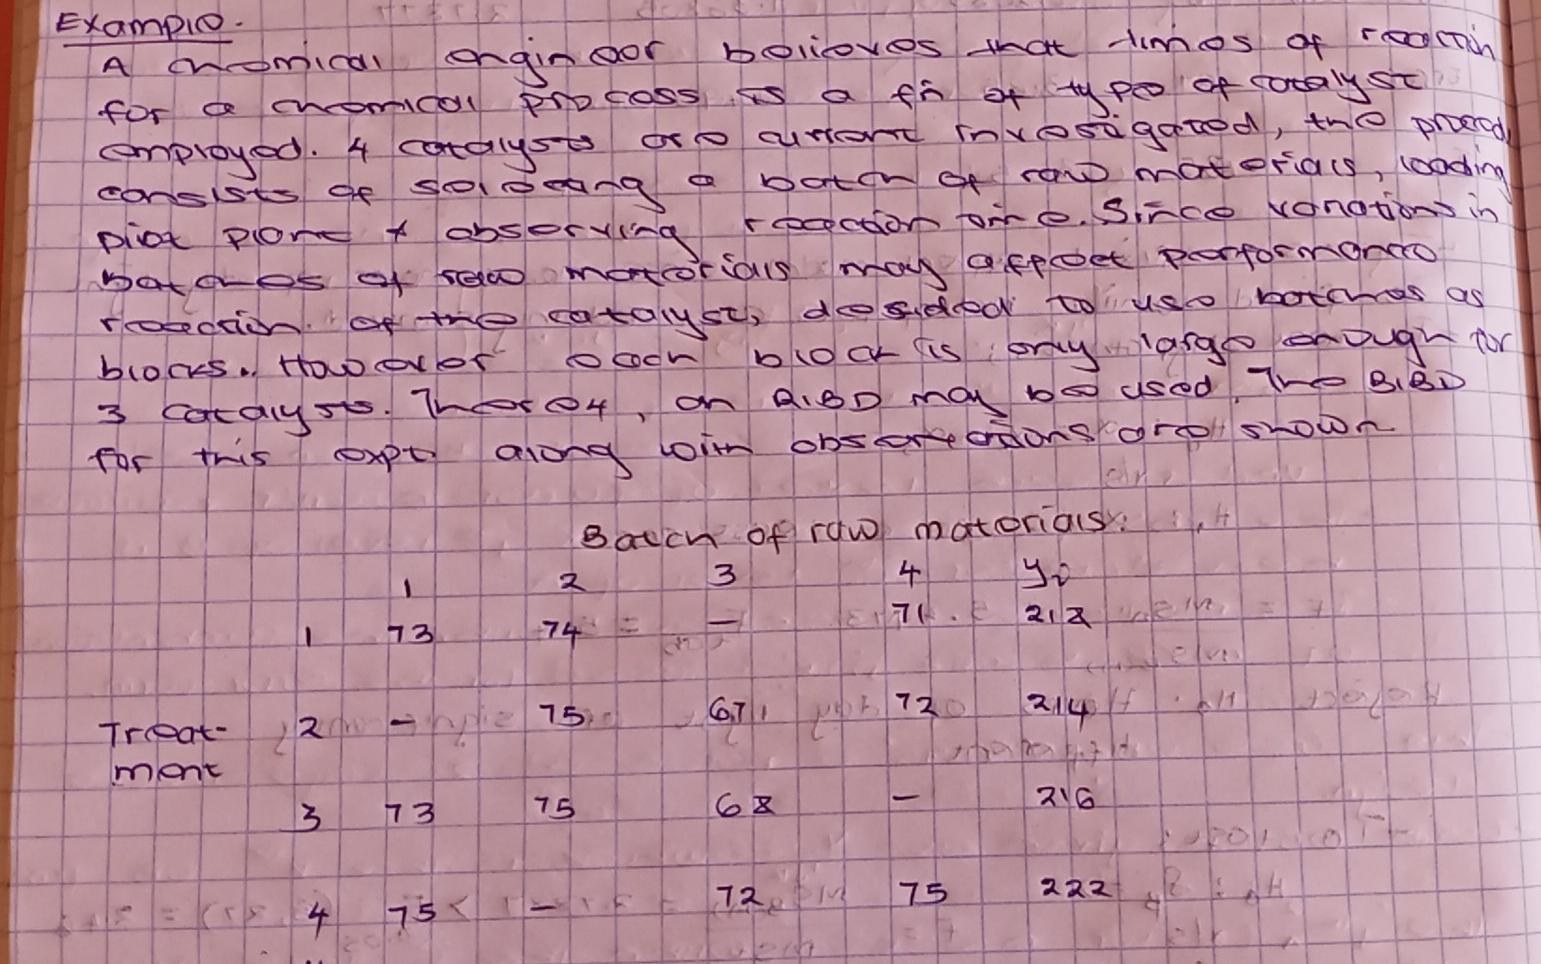 Example.
A chemical engineer believes that times of reaction
for a chemical process is a fn of type of catalyst
employed. 4 catalysts are current investigated, the proced
consists of selecting a batch of raw materials, loading
pilot plant & observing reaction time. Since variations in
batches of raw materials may affect performance
reaction of the catalyst, decided to use batches as
blocks. However each block is only large enough for
3 catalysts. There04, an B.I.B.D may be used. The B.I.B.D
for this expt along with observations are shown
Batch of raw materials:
1 2 3 4 yi
1 73 74 - 71 218
2 - 75 67 72 214
Treat-
ment
3 73 75 68 - 216
4 75 - 72 75 222